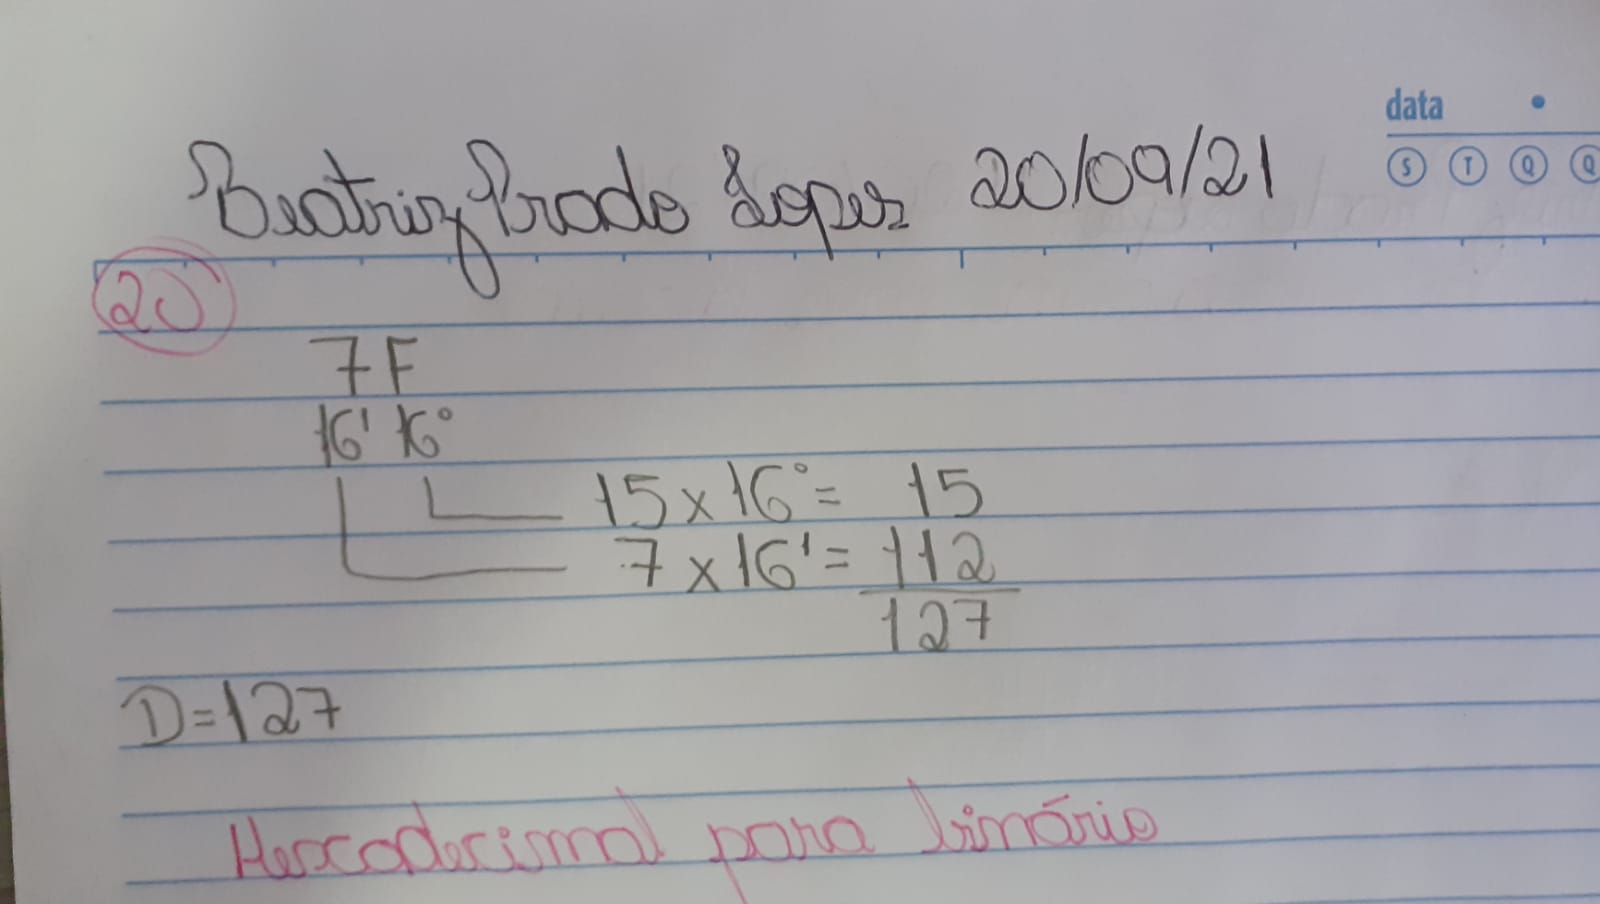 data
S T Q Q
Beatriz Prado Lopes 20/09/21
20
7F
16¹ 16⁰
15 x 16⁰ = 15
7 x 16¹ = 112
127
D=127
Hexadecimal para binário